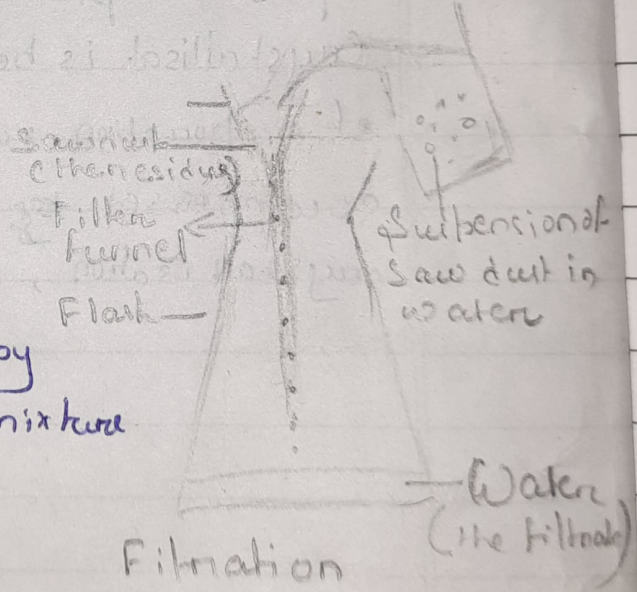 Saw dust
(the residue)
Filter
funnel
Flask
Suspension of
saw dust in
water
py
mixture
Water
(the filtrate)
Filtration